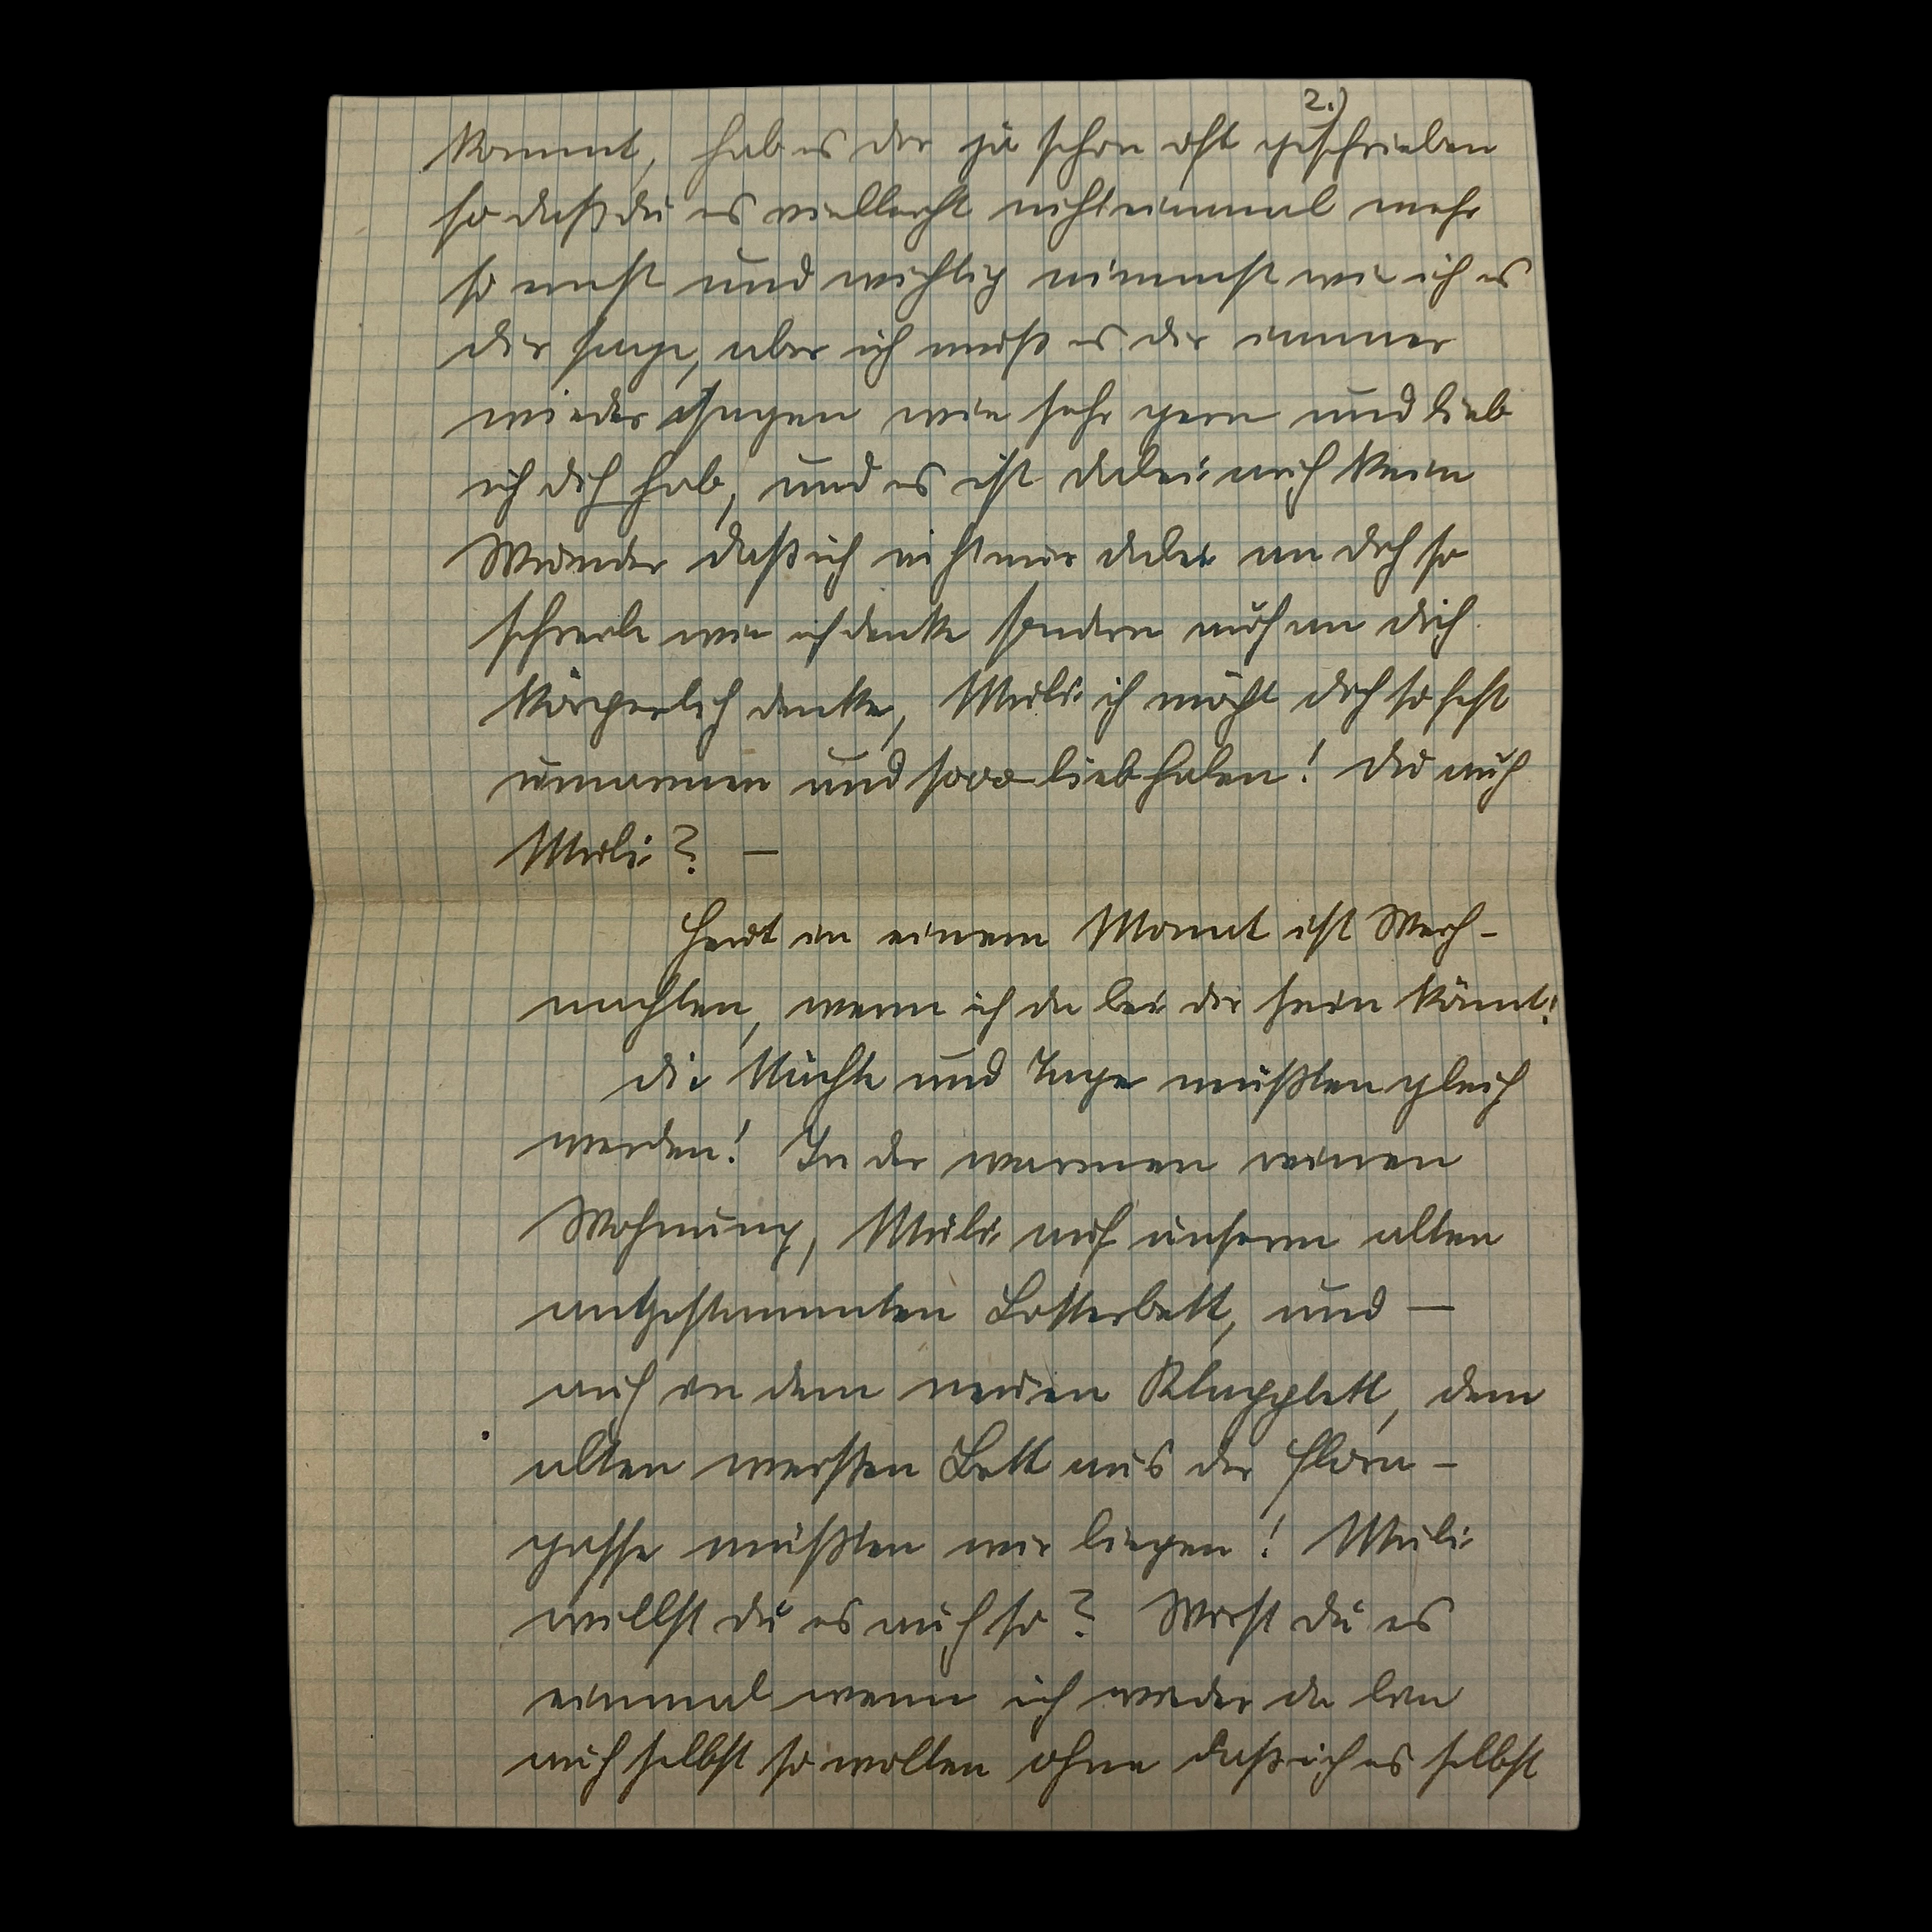 2.)
kommt, hab es dir ja schon oft geschrieben
so daß du es vielleicht nichteinmal mehr
so ernst und wichtig nimmst wie ich es
dir sage, aber ich muß es dir immer
wieder sagen wie sehr gern und lieb
ich dich hab, und es ist dabei auch kein
Wunder daß ich nicht nur dabei an dich so
schreibe wie ich denke sondern auch an dich
körperlich denke, Mubi ich möcht dich so fest
umarmen und sooo lieb haben! Du auch
Mubi? —
Heut in einem Monat ist Weih-
nachten, wenn ich da bei dir sein könnt!
Die Nächte und Tage müßten gleich
werden! In der warmen reinen
Wohnung, Mubi auf unserm alten
angestammten Lotterbett, und —
auch in dem neuen Klappbett, dem
alten weißen Bett aus der Flora-
gasse müßten wir liegen! Mubi
willst du es auch so? Wirst du es
einmal wenn ich wieder da bin
auch selbst so wollen ohne daß ich es selbst